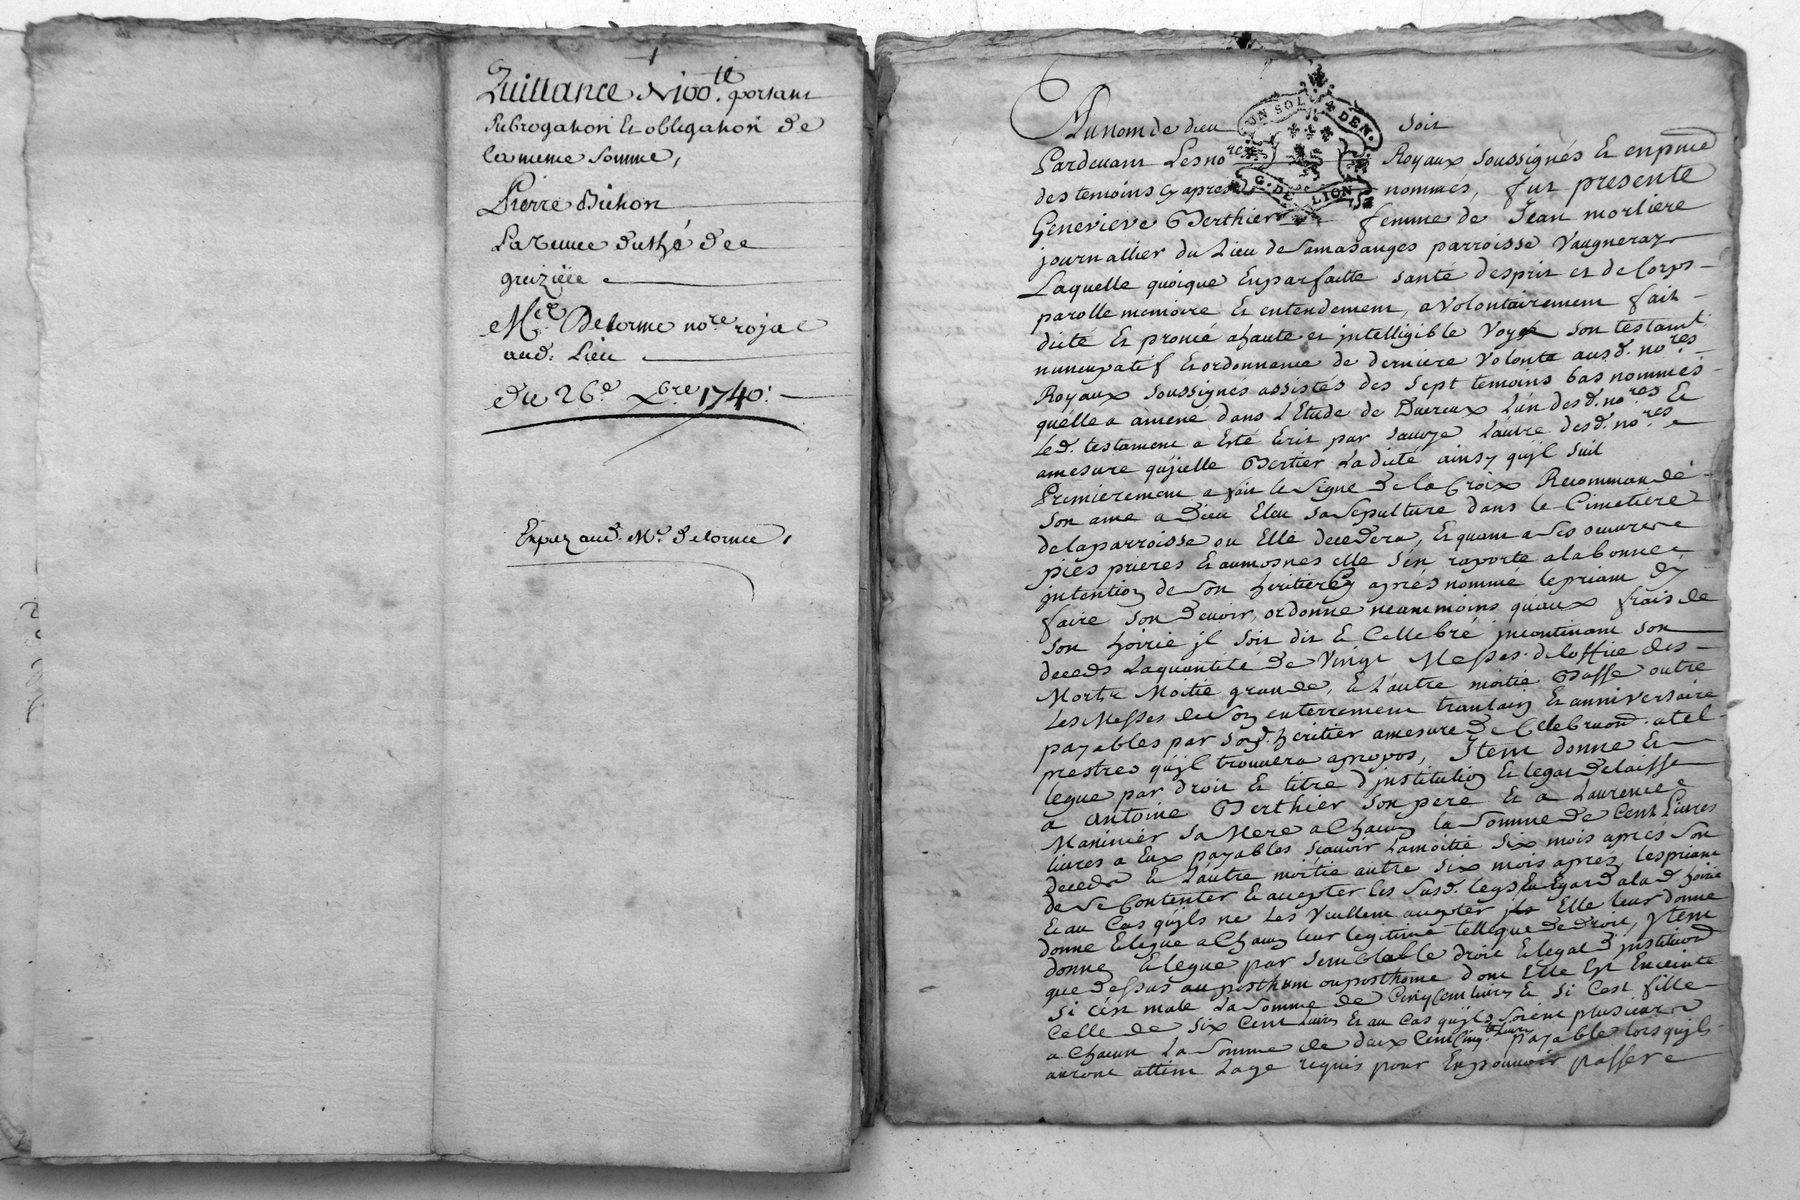 Quittance de 100.ll portant
subrogation et obligation de
la meme somme,
Pierre Bichon
La veuve duthé dee
greiziëe
Me. Delorme nore. royal
aud. Lieu
Du 26e xbre 1740.
Expez aud. Me. Delorme,
Au nom de dieu soit
UN SOL DEN.
G. DE LION
Pardevant Les nores Royaux soussignés et en pnce
des temoins cy apres nommés, fut presente
Genevieve Berthier femme de Jean morliere
journallier du Lieu de Lamasanges parroisse Vaugneray
Laquelle quoique En parfaitte santé desprit et de Corps
parolle memoire et entendement, a volontairement fait
dicté Et proncé a haute et intelligible Voye son testamt
nuncupatif Et ordonnance de derniere volonte ausd. nores
Royaux soussignés assistés des sept temoins bas nommés
quelle a amené dans L'Etude de L'un desd. nores Et
Led. testament a Esté Ecrit par sauvze Lautre desd. nores
amesure qu'jcelle Bertier La dicté ainsy qu'jl suit
Premierement a fait le signe de la Croix Recommandé
son ame a Dieu Eleu sa sepulture dans le Cimetiere
de la parroisse ou Elle decedera, Et quant a ses oeuvres
pies prieres Et aumosnes elle s'en raporte a la bonne
jntention de son heritier cy aprés nommé le priant dy
faire son devoir, ordonne neanmoins qu'aux frais de
son hoirie jl soit dit Et Cellebré jncontinant son
deceds La quantité de Vingt Messes de loffice des
Morts Moitié grande, Et L'autre moitié Basse outre
Les Messes de son enterrement trantain Et anniversaire
payables par sond. heritier amesure de Celebraon. a tel
prestres qu'jl trouvera apropos, Jtem donne Et
legue par droit Et titre d'jnstitution Et legat delaisse
a Antoine Berthier son pere Et a Laurence
Marinier sa Mere a Chacun la somme de Cent Livres
livres a Eux payables scavoir La moitié six mois aprés son
deceds Et L'autre moitié autre six mois aprez, les priant
de se Contenter Et accepter les susd. legs Eu Egard a la d. hoirie
Et au Cas qu'jls ne Les Veullent accepter Elle leur donne
donne Et legue a Chacun leur legitime telle que de droit, jtem
donne Et legue par semblable droit Et legat d'jnstituon
que dessus au posthum ou posthume dont Elle Est Enceinte
si c'est male La somme de Cinq Cent livres Et si c'est fille
Celle de six Cent Livres Et au Cas qu'jls soient plusieurs
a Chacun La somme de deux Cent Cinqte livres payable lors qu'jls
auront attein Lage requis pour En pouvoir passer